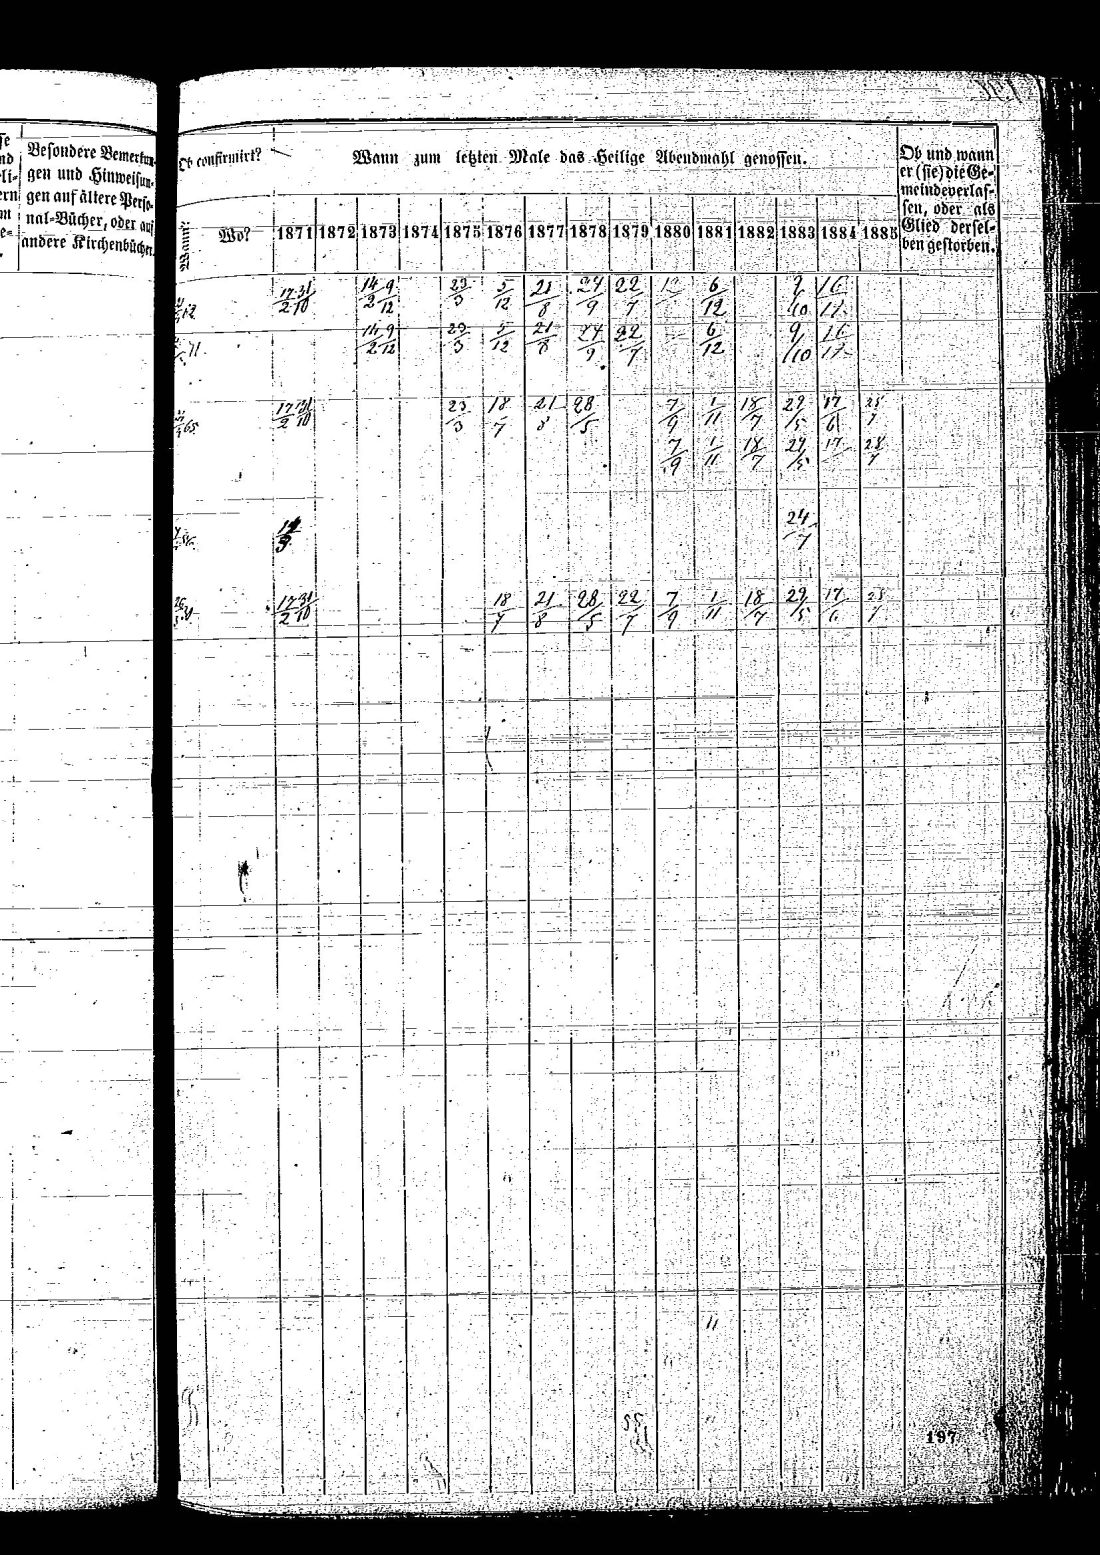 Besondere Bemerkun-
gen und Hinweisun-
gen auf ältere Perso-
nal-Bücher, oder auf
andere Kirchenbücher.
Ob confirmirt?
Wann zum letzten Male das Heilige Abendmahl genossen.
Ob und wann
er (sie) die Ge-
meinde verlas-
sen, oder als
Glied dersel-
ben gestorben.
Wann?
Wo?
1871 1872 1873 1874 1875 1876 1877 1878 1879 1880 1881 1882 1883 1884 1885
17/2 31/10 14/2 9/12 23/3 5/12 21/8 24/9 22/7 6/12 9/10 16/12
14/2 9/12 23/3 5/12 21/8 24/9 22/7 6/12 9/10 16/12
17/2 31/10 23/3 18/7 21/8 28/5 7/9 1/11 18/7 29/5 17/6 28/7
7/9 1/11 18/7 29/5 17 28/7
24/7
17/2 31/10 18/7 21/8 28/5 22/7 7/9 1/11 18/7 29/5 17/6 28/7
197